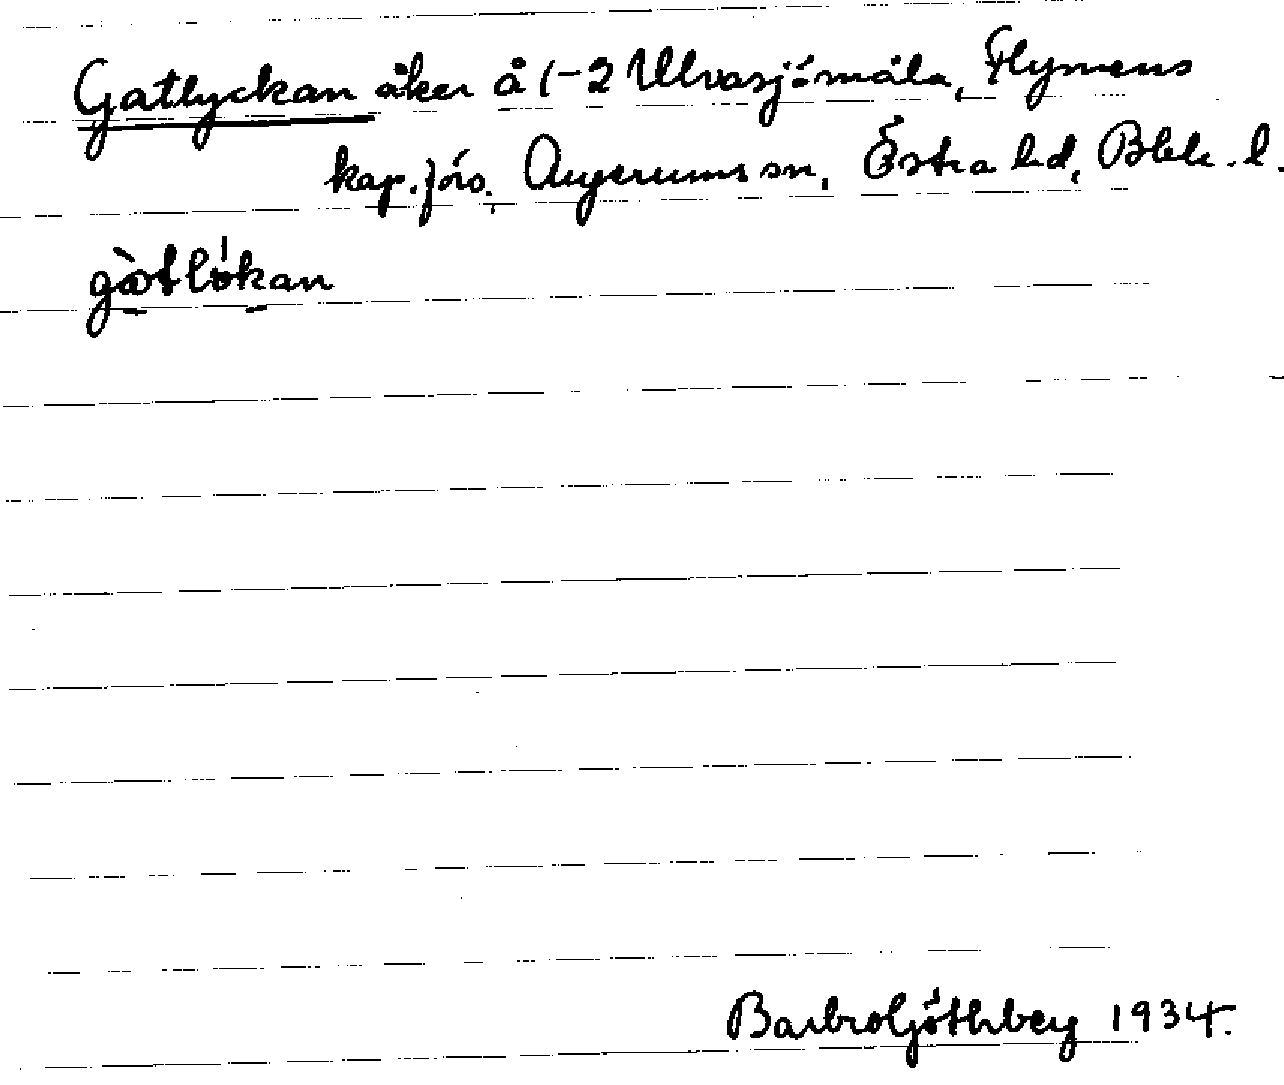 Gatlyckan åker å 1-2 Ulvasjömåla, Flymens
kap.förs., Augerums sn, Östra hd, Blek. l.
gàtlǿkan
Barbro Göthberg 1934.